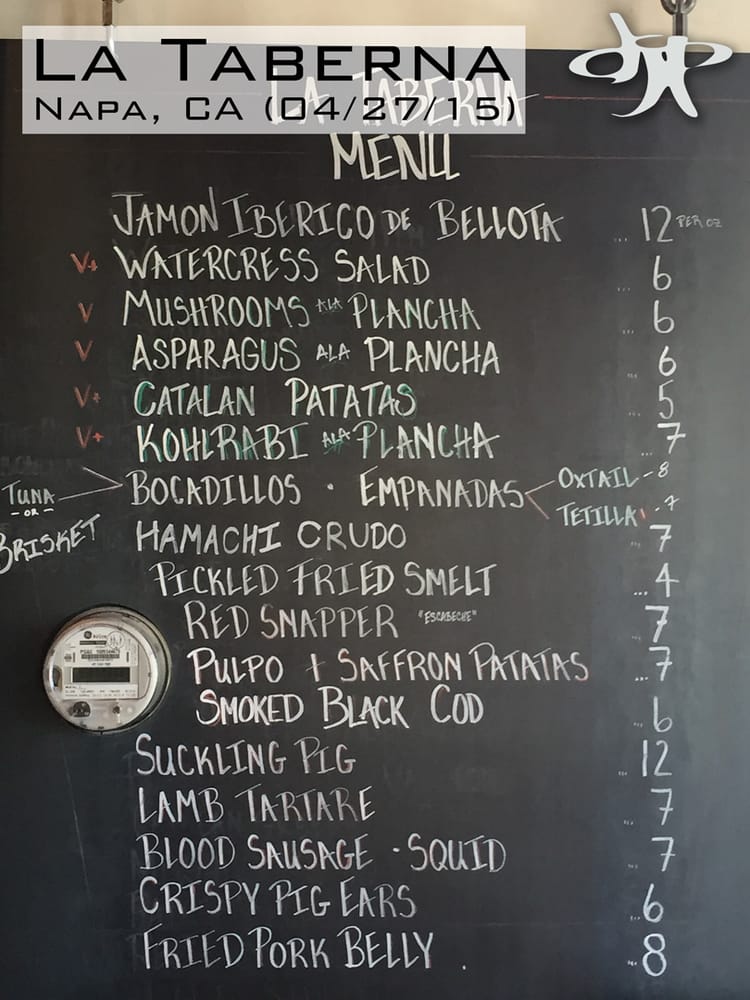 LA TABERNA
NAPA, CA (04/27/15)
LA TABERNA
MENU
JAMON IBERICO DE BELLOTA ... 12 PER OZ
V+ WATERCRESS SALAD ... 6
V MUSHROOMS ALA PLANCHA ... 6
V ASPARAGUS ALA PLANCHA ... 6
V+ CATALAN PATATAS ... 5
V+ KOHLRABI ALA PLANCHA ... 7
TUNA
- OR -
BRISKET
BOCADILLOS · EMPANADAS
OXTAIL - 8
TETILLA - 7
HAMACHI CRUDO ... 7
PICKLED FRIED SMELT ... 4
RED SNAPPER "ESCABECHE" ... 7
PULPO + SAFFRON PATATAS ... 7
SMOKED BLACK COD ... 6
SUCKLING PIG ... 12
LAMB TARTARE ... 7
BLOOD SAUSAGE · SQUID ... 7
CRISPY PIG EARS ... 6
FRIED PORK BELLY . ... 8